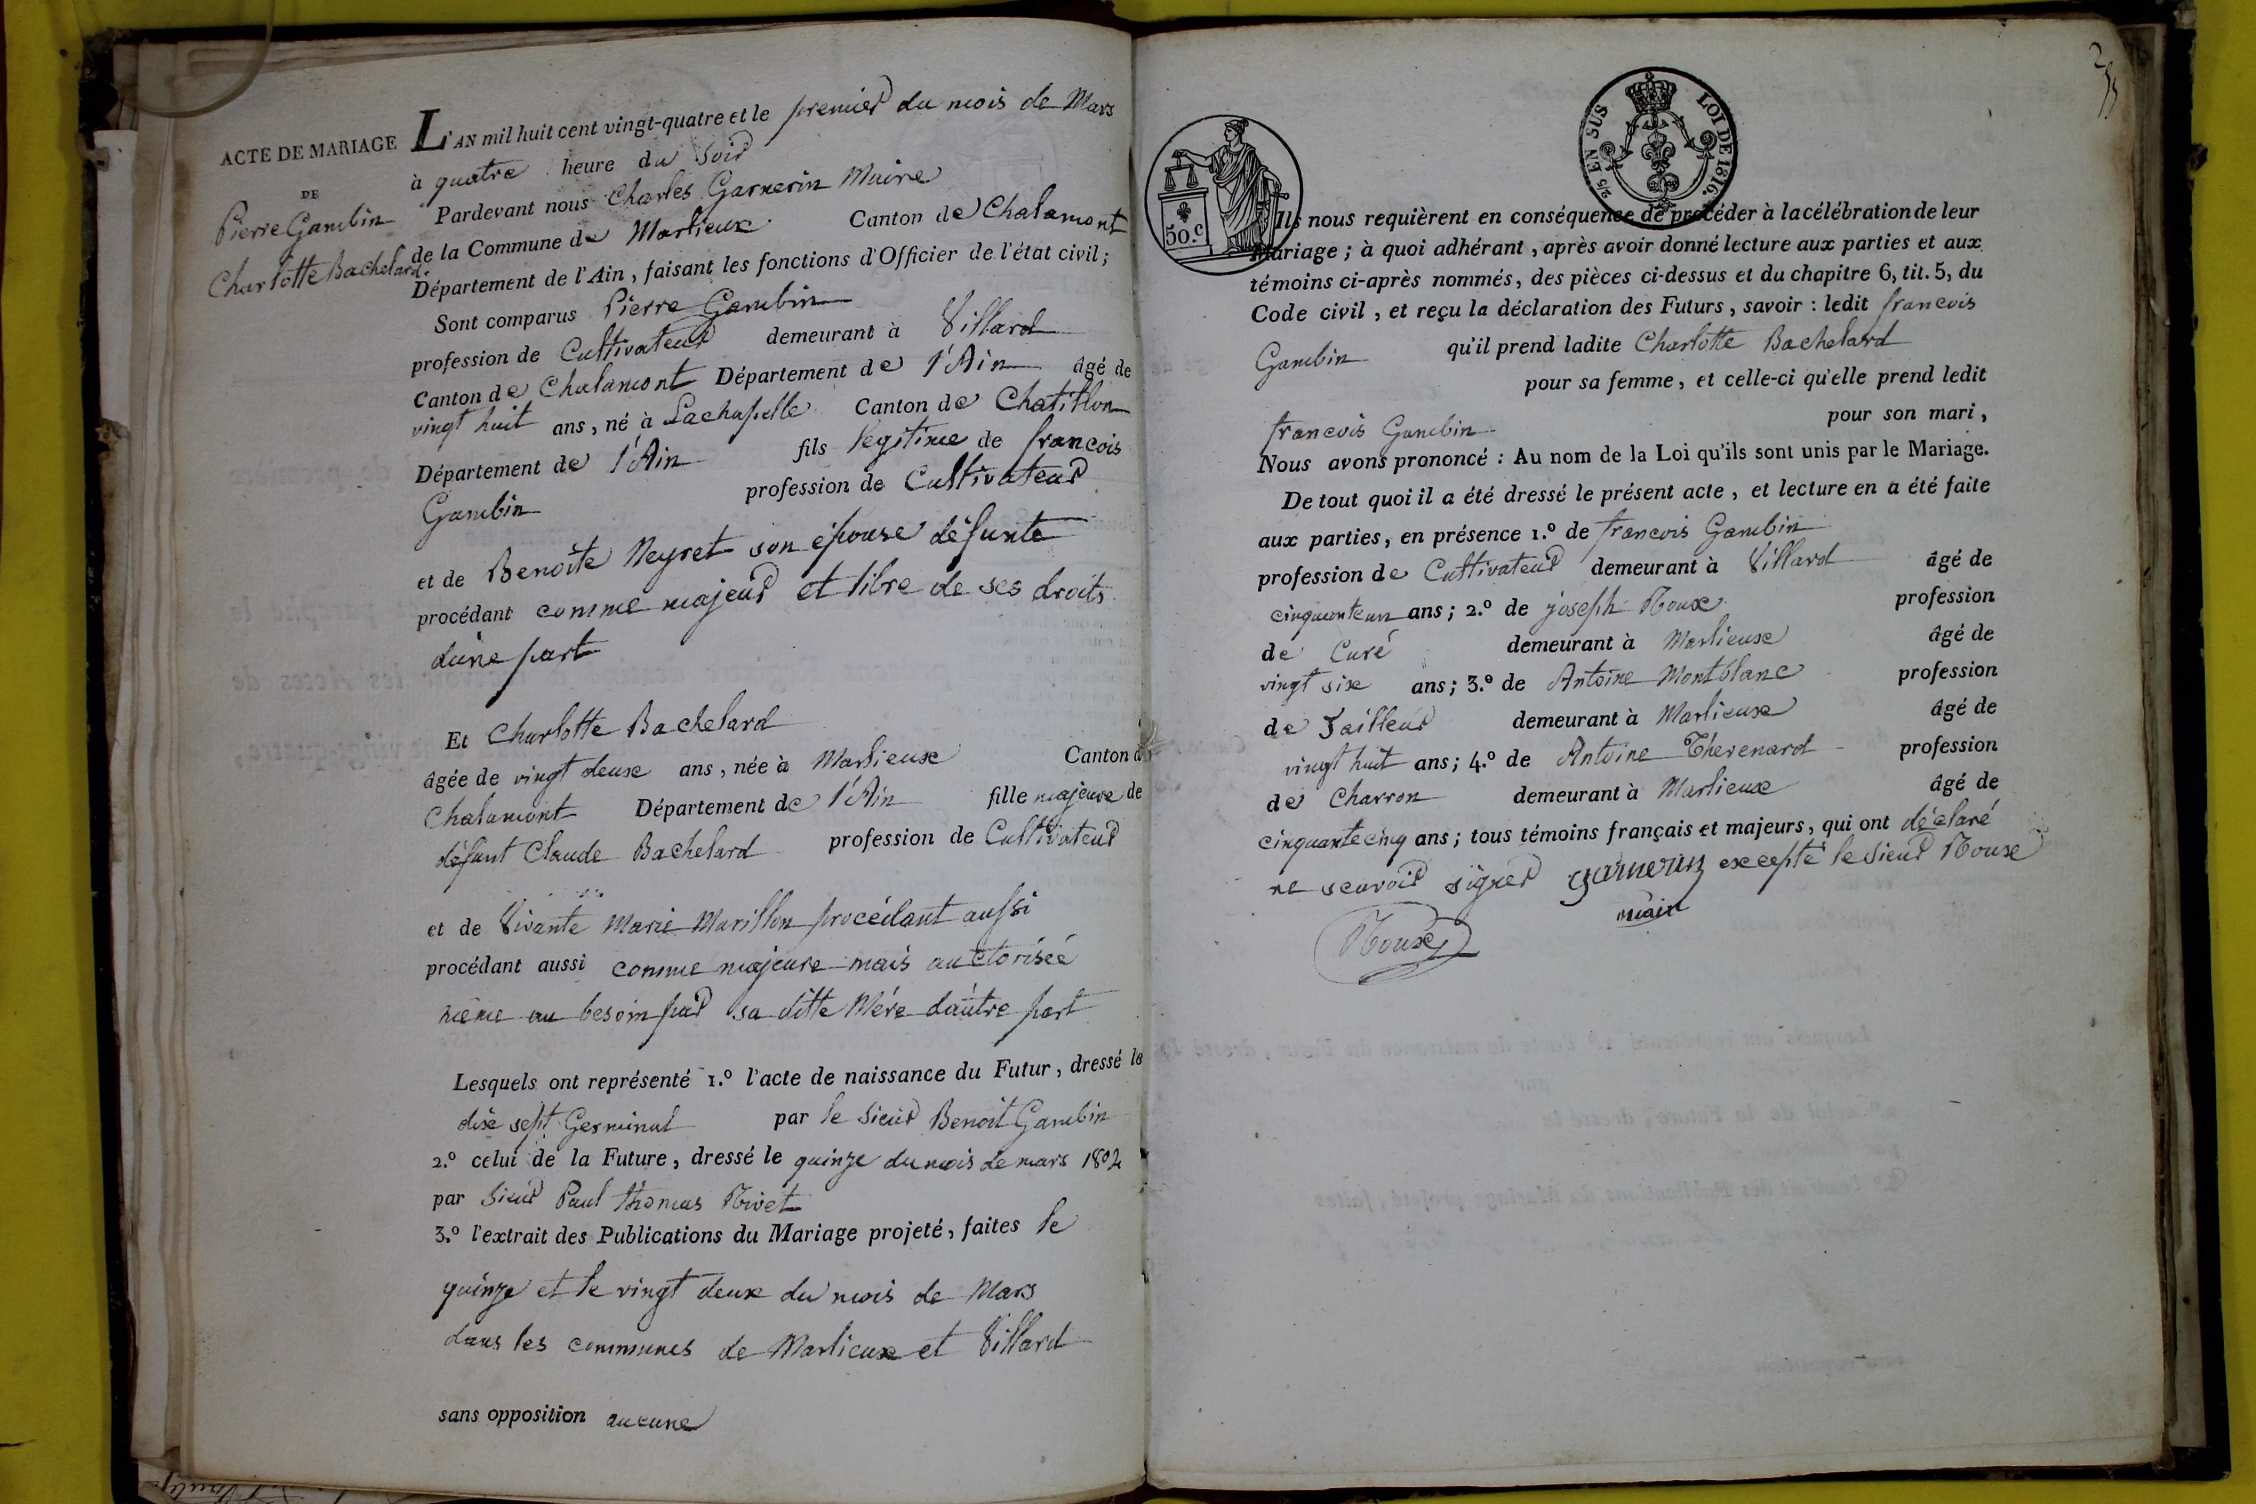 ACTE DE MARIAGE
DE
Pierre Gambin
Charlotte Bachelard.
L'AN mil huit cent vingt-quatre et le premier du mois de Mars
à quatre heure du soir
Pardevant nous Charles Garnerin Maire
de la Commune de Marlieux Canton de Chalamont
Département de l'Ain, faisant les fonctions d'Officier de l'état civil;
Sont comparus Pierre Gambin
profession de Cultivateur demeurant à Villard
Canton de Chalamont Département de l'Ain âgé de
vingt huit ans, né à Lachapelle Canton de Chatillon
Département de l'Ain fils legitime de francois
Gambin profession de Cultivateur
et de Benoite Neyret son épouse défunte
procédant comme majeur et libre de ses droits
d'une part
Et Charlotte Bachelard
âgée de vingt deux ans, née à Marlieux Canton de
Chalamont Département de l'Ain fille majeure de
défunt Claude Bachelard profession de Cultivateur
et de Vivante Marie Marillon procédant aussi
procédant aussi comme majeure mais auctorisée
même au besoin par sa ditte Mére d'autre part
Lesquels ont représenté 1.º l'acte de naissance du Futur, dressé le
dix sept Germinal par le Sieur Benoit Gambin
2.º celui de la Future, dressé le quinze du mois de mars 1802
par Sieur Paul thomas Rivet
3.º l'extrait des Publications du Mariage projeté, faites le
quinze et le vingt deux du mois de Mars
dans les communes de Marlieux et Villard
sans opposition aucune
2/5 EN SUS LOI DE 1816.
50.C
Ils nous requièrent en conséquence de procéder à la célébration de leur
Mariage; à quoi adhérant, après avoir donné lecture aux parties et aux
témoins ci-après nommés, des pièces ci-dessus et du chapitre 6, tit. 5, du
Code civil, et reçu la déclaration des Futurs, savoir: ledit francois
Gambin qu'il prend ladite Charlotte Bachelard
pour sa femme, et celle-ci qu'elle prend ledit
francois Gambin pour son mari,
Nous avons prononcé: Au nom de la Loi qu'ils sont unis par le Mariage.
De tout quoi il a été dressé le présent acte, et lecture en a été faite
aux parties, en présence 1.º de francois Gambin
profession de Cultivateur demeurant à Villard âgé de
cinquanteun ans; 2.º de joseph Roux profession
de Curé demeurant à Marlieux âgé de
vingt six ans; 3.º de Antoine Montblanc profession
de Tailleur demeurant à Marlieux âgé de
vingt huit ans; 4.º de Antoine Thevenard profession
de Charron demeurant à Marlieux âgé de
cinquante cinq ans; tous témoins français et majeurs, qui ont déclaré
ne scavoir signer garnerin excepté le Sieur Roux
mair
Roux